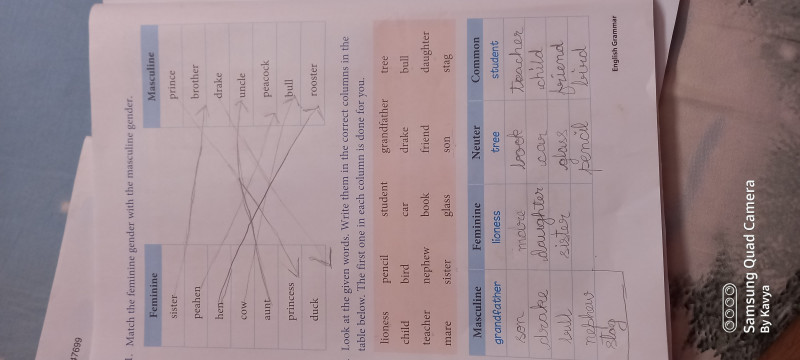 1. Match the feminine gender with the masculine gender.
Feminine Masculine
sister prince
peahen brother
hen drake
cow uncle
aunt peacock
princess bull
duck rooster
Look at the given words. Write them in the correct columns in the
table below. The first one in each column is done for you.
lioness pencil student grandfather tree
child bird car drake bull
teacher nephew book friend daughter
mare sister glass son stag
Masculine Feminine Neuter Common
grandfather lioness tree student
son book teacher
drake daughter car child
bull sister glass friend
nephew pencil bird
stag
English Grammar
47699
Samsung Quad Camera
By Kavya